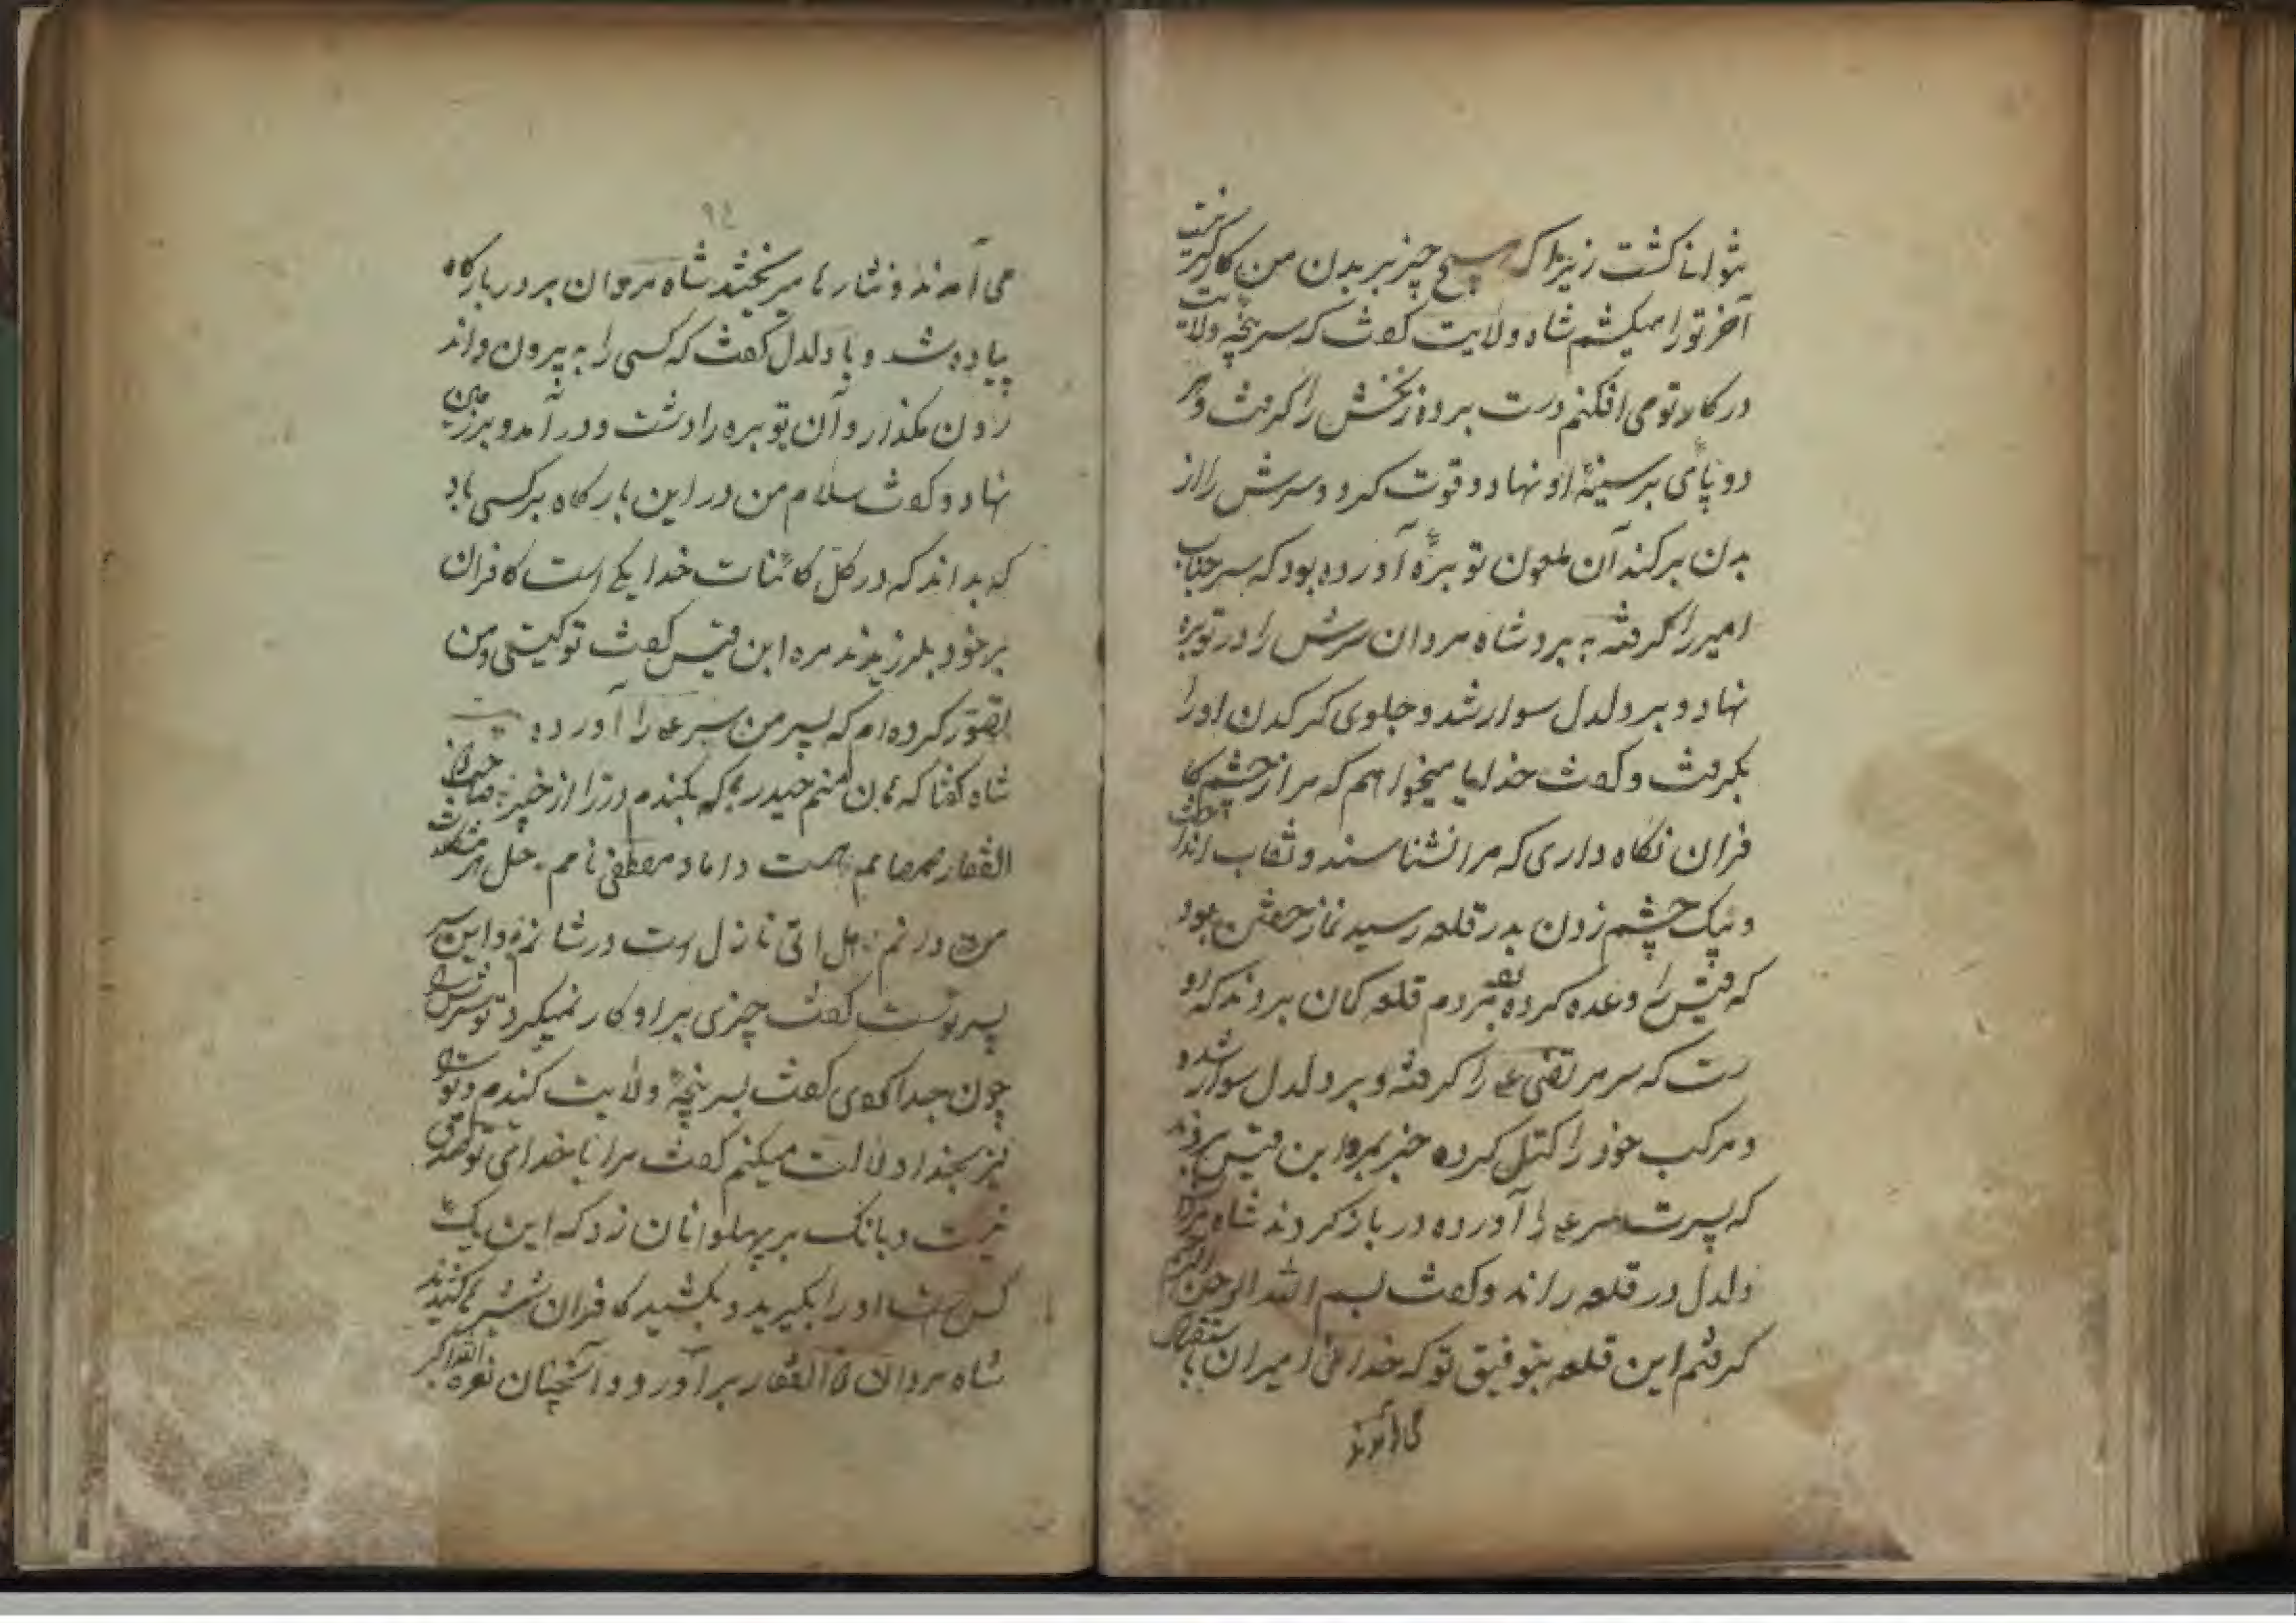 نتوانا کشت زیرا که هیچ چیز بر بدن من کارگر نیست
آخر تو را میکشم شاه ولایت کفت که سرپنچه ولایت
در کار تو می افکنم دست برد و زنخش را کرفت و هر
دو پای بر سینهٔ او نهاد و قوت کرد و سرش را از
بدن برکند آن ملعون توبره آورده بود که سر جناب
امیر را کرفته به برد شاه مردان سرش را در توبره
نهاد و بر دلدل سوار شد و جلوی کرکدن او را
بکرفت و کفت خدایا میخواهم که مرا از چشم کا
فران نکاه داری که مرا نشناسند و نقاب انداخت
و بیک چشم زدن بدر قلعه رسید نماز خفتن بود
که قیس را وعده کرده بود مردم قلعه کمان بردند که او
ست که سر مرتضی ع را کرفته و بر دلدل سوار شده
و مرکب خود را کتل کرده خبر بمره ابن قیس بردند
که پسرت سر ع را آورده در باز کردند شاه مردان
دلدل در قلعه راند و کفت بسم الله الرحمن الرحیم
کرفتم این قلعه بتوفیق تو که خدائی امیران باستقبال
می آمدند
٩٤
می آمدند و نثارها میریختند شاه مردان بر در بارکاه
پیاده شد و با دلدل کفت که کسی را به بیرون و اند
رون مکذار و آن توبره را داشت و در آمد و بر زمین
نهاد و کفت سلام من در این بارکاه بر کسی باد
که بداند که در کل کائنات خدا یکی است کافران
بر خود بلرزیدند مره ابن قیس کفت تو کیستی و من
تصور کرده ام که پسر من سر ع را آورده
شاه کفتا که هان منم حیدر آنکه بکندم در را از خیبر صاحب ذو
الفقار صمصامم هست داماد مصطفی نامم حل هر مشکلات
من دانم هل اتی نازل است در شانم و این سر
پسر توست کفت چیزی بر او کار نمیکرد تو سرش را
چون جدا کردی کفت بسر پنچهٔ ولایت کندم و تو را
نیز بخدا دلالت میکنم کفت مرا با خدای تو کاری
نیست و بانک بر پهلوانان زد که این یک
کس است او را بکیرید و بکشید کافران شمشیرها کشیدند
شاه مردان ذوالفقار برآورد و آنچنان نعره الله اکبر